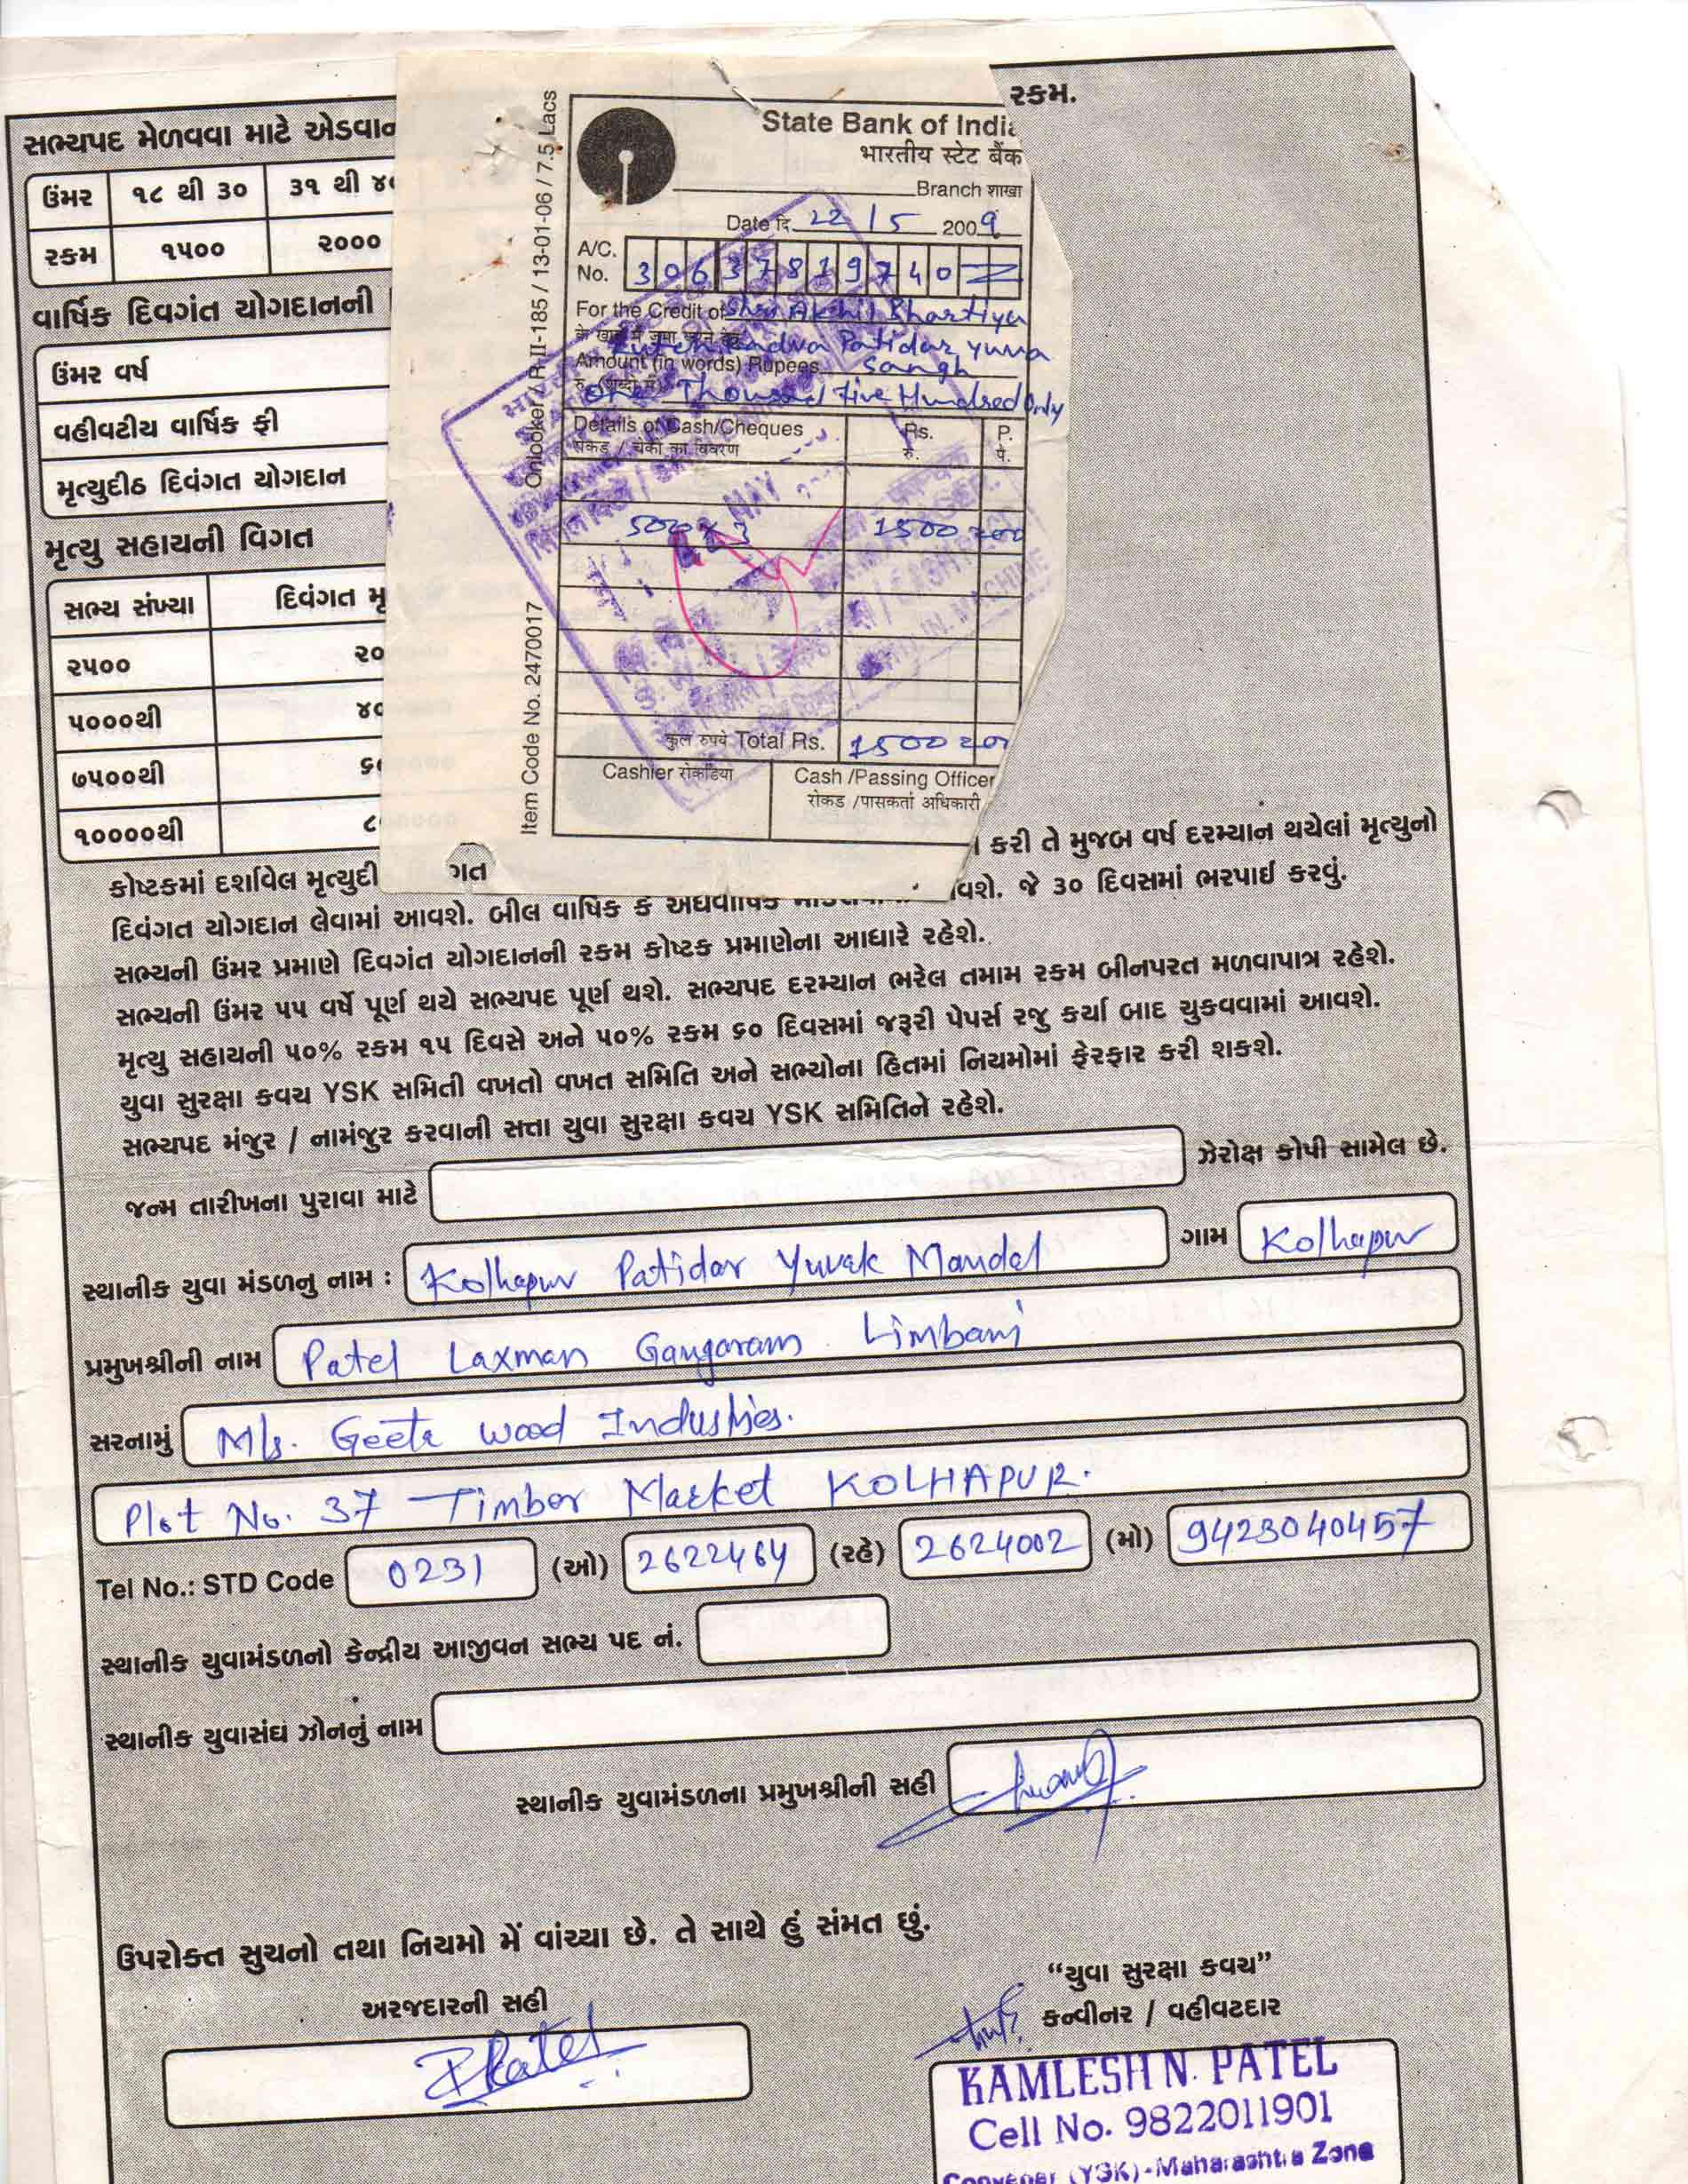 રકમ.
સભ્યપદ મેળવવા માટે એડવાન
ઉંમર ૧૮ થી ૩૦ ૩૧ થી ૪૦
રકમ ૧૫૦૦ ૨૦૦૦
વાર્ષિક દિવગંત યોગદાનની
ઉંમર વર્ષ
વહીવટીય વાર્ષિક ફી
મૃત્યુદીઠ દિવંગત યોગદાન
મૃત્યુ સહાયની વિગત
સભ્ય સંખ્યા દિવંગત મૃ
૨૫૦૦ ૨૦
૫૦૦૦થી ૪૦
૭૫૦૦થી ૬૦
૧૦૦૦૦થી ૮
Item Code No. 2470017 Onlooker / R-II-185 / 13-01-06 / 7.5 Lacs
State Bank of India
भारतीय स्टेट बैंक
Branch शाखा
Date दि. 22/5 2009
A/C. No. 30637819740
For the Credit of Shri Akhil Bhartiya
Kutch Kadva Patidar Yuva
Amount (in words) Rupees Sangh
One Thousand Five Hundred Only
Details of Cash/Cheques Rs. P.
रु. पै.
500 x 3 1500=00
कुल रुपये Total Rs. 1500=00
Cashier रोकडिया Cash /Passing Officer
रोकड /पासकर्ता अधिकारी
કરી તે મુજબ વર્ષ દરમ્યાન થયેલાં મૃત્યુનો
કોષ્ટકમાં દર્શાવેલ મૃત્યુદી ગત
દિવંગત યોગદાન લેવામાં આવશે. બીલ વાર્ષિક કે અર્ધવાર્ષિક વશે. જે ૩૦ દિવસમાં ભરપાઈ કરવું.
સભ્યની ઉંમર પ્રમાણે દિવગંત યોગદાનની રકમ કોષ્ટક પ્રમાણેના આધારે રહેશે.
સભ્યની ઉંમર ૫૫ વર્ષે પૂર્ણ થયે સભ્યપદ પૂર્ણ થશે. સભ્યપદ દરમ્યાન ભરેલ તમામ રકમ બીનપરત મળવાપાત્ર રહેશે.
મૃત્યુ સહાયની ૫૦% રકમ ૧૫ દિવસે અને ૫૦% રકમ ૬૦ દિવસમાં જરૂરી પેપર્સ રજુ કર્યા બાદ ચુકવવામાં આવશે.
યુવા સુરક્ષા કવચ YSK સમિતી વખતો વખત સમિતિ અને સભ્યોના હિતમાં નિયમોમાં ફેરફાર કરી શકશે.
સભ્યપદ મંજુર / નામંજુર કરવાની સત્તા યુવા સુરક્ષા કવચ YSK સમિતિને રહેશે.
જન્મ તારીખના પુરાવા માટે ઝેરોક્ષ કોપી સામેલ છે.
સ્થાનીક યુવા મંડળનુ નામ : Kolhapur Patidar Yuvak Mandal ગામ Kolhapur
પ્રમુખશ્રીની નામ Patel Laxman Gangaram Limbani
સરનામું M/s. Geeta Wood Industries.
Plot No. 37 Timber Market KOLHAPUR.
Tel No.: STD Code 0231 (ઓ) 2622464 (રહે) 2624002 (મો) 9423040457
સ્થાનીક યુવામંડળનો કેન્દ્રીય આજીવન સભ્ય પદ નં.
સ્થાનીક યુવાસંઘ ઝોનનું નામ
સ્થાનીક યુવામંડળના પ્રમુખશ્રીની સહી
ઉપરોક્ત સુચનો તથા નિયમો મેં વાંચ્યા છે. તે સાથે હું સંમત છું.
અરજદારની સહી
"યુવા સુરક્ષા કવચ"
કન્વીનર / વહીવટદાર
KAMLESH N. PATEL
Cell No. 9822011901
Convener (YSK)-Maharashtra Zone